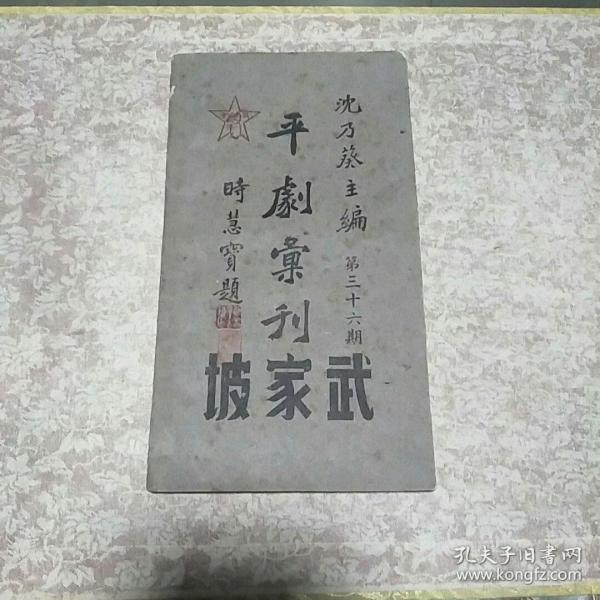 沈乃葵主編
第三十六期
平劇彙刊
時慧寶題
武家坡
孔夫子旧书网
www.kongfz.com